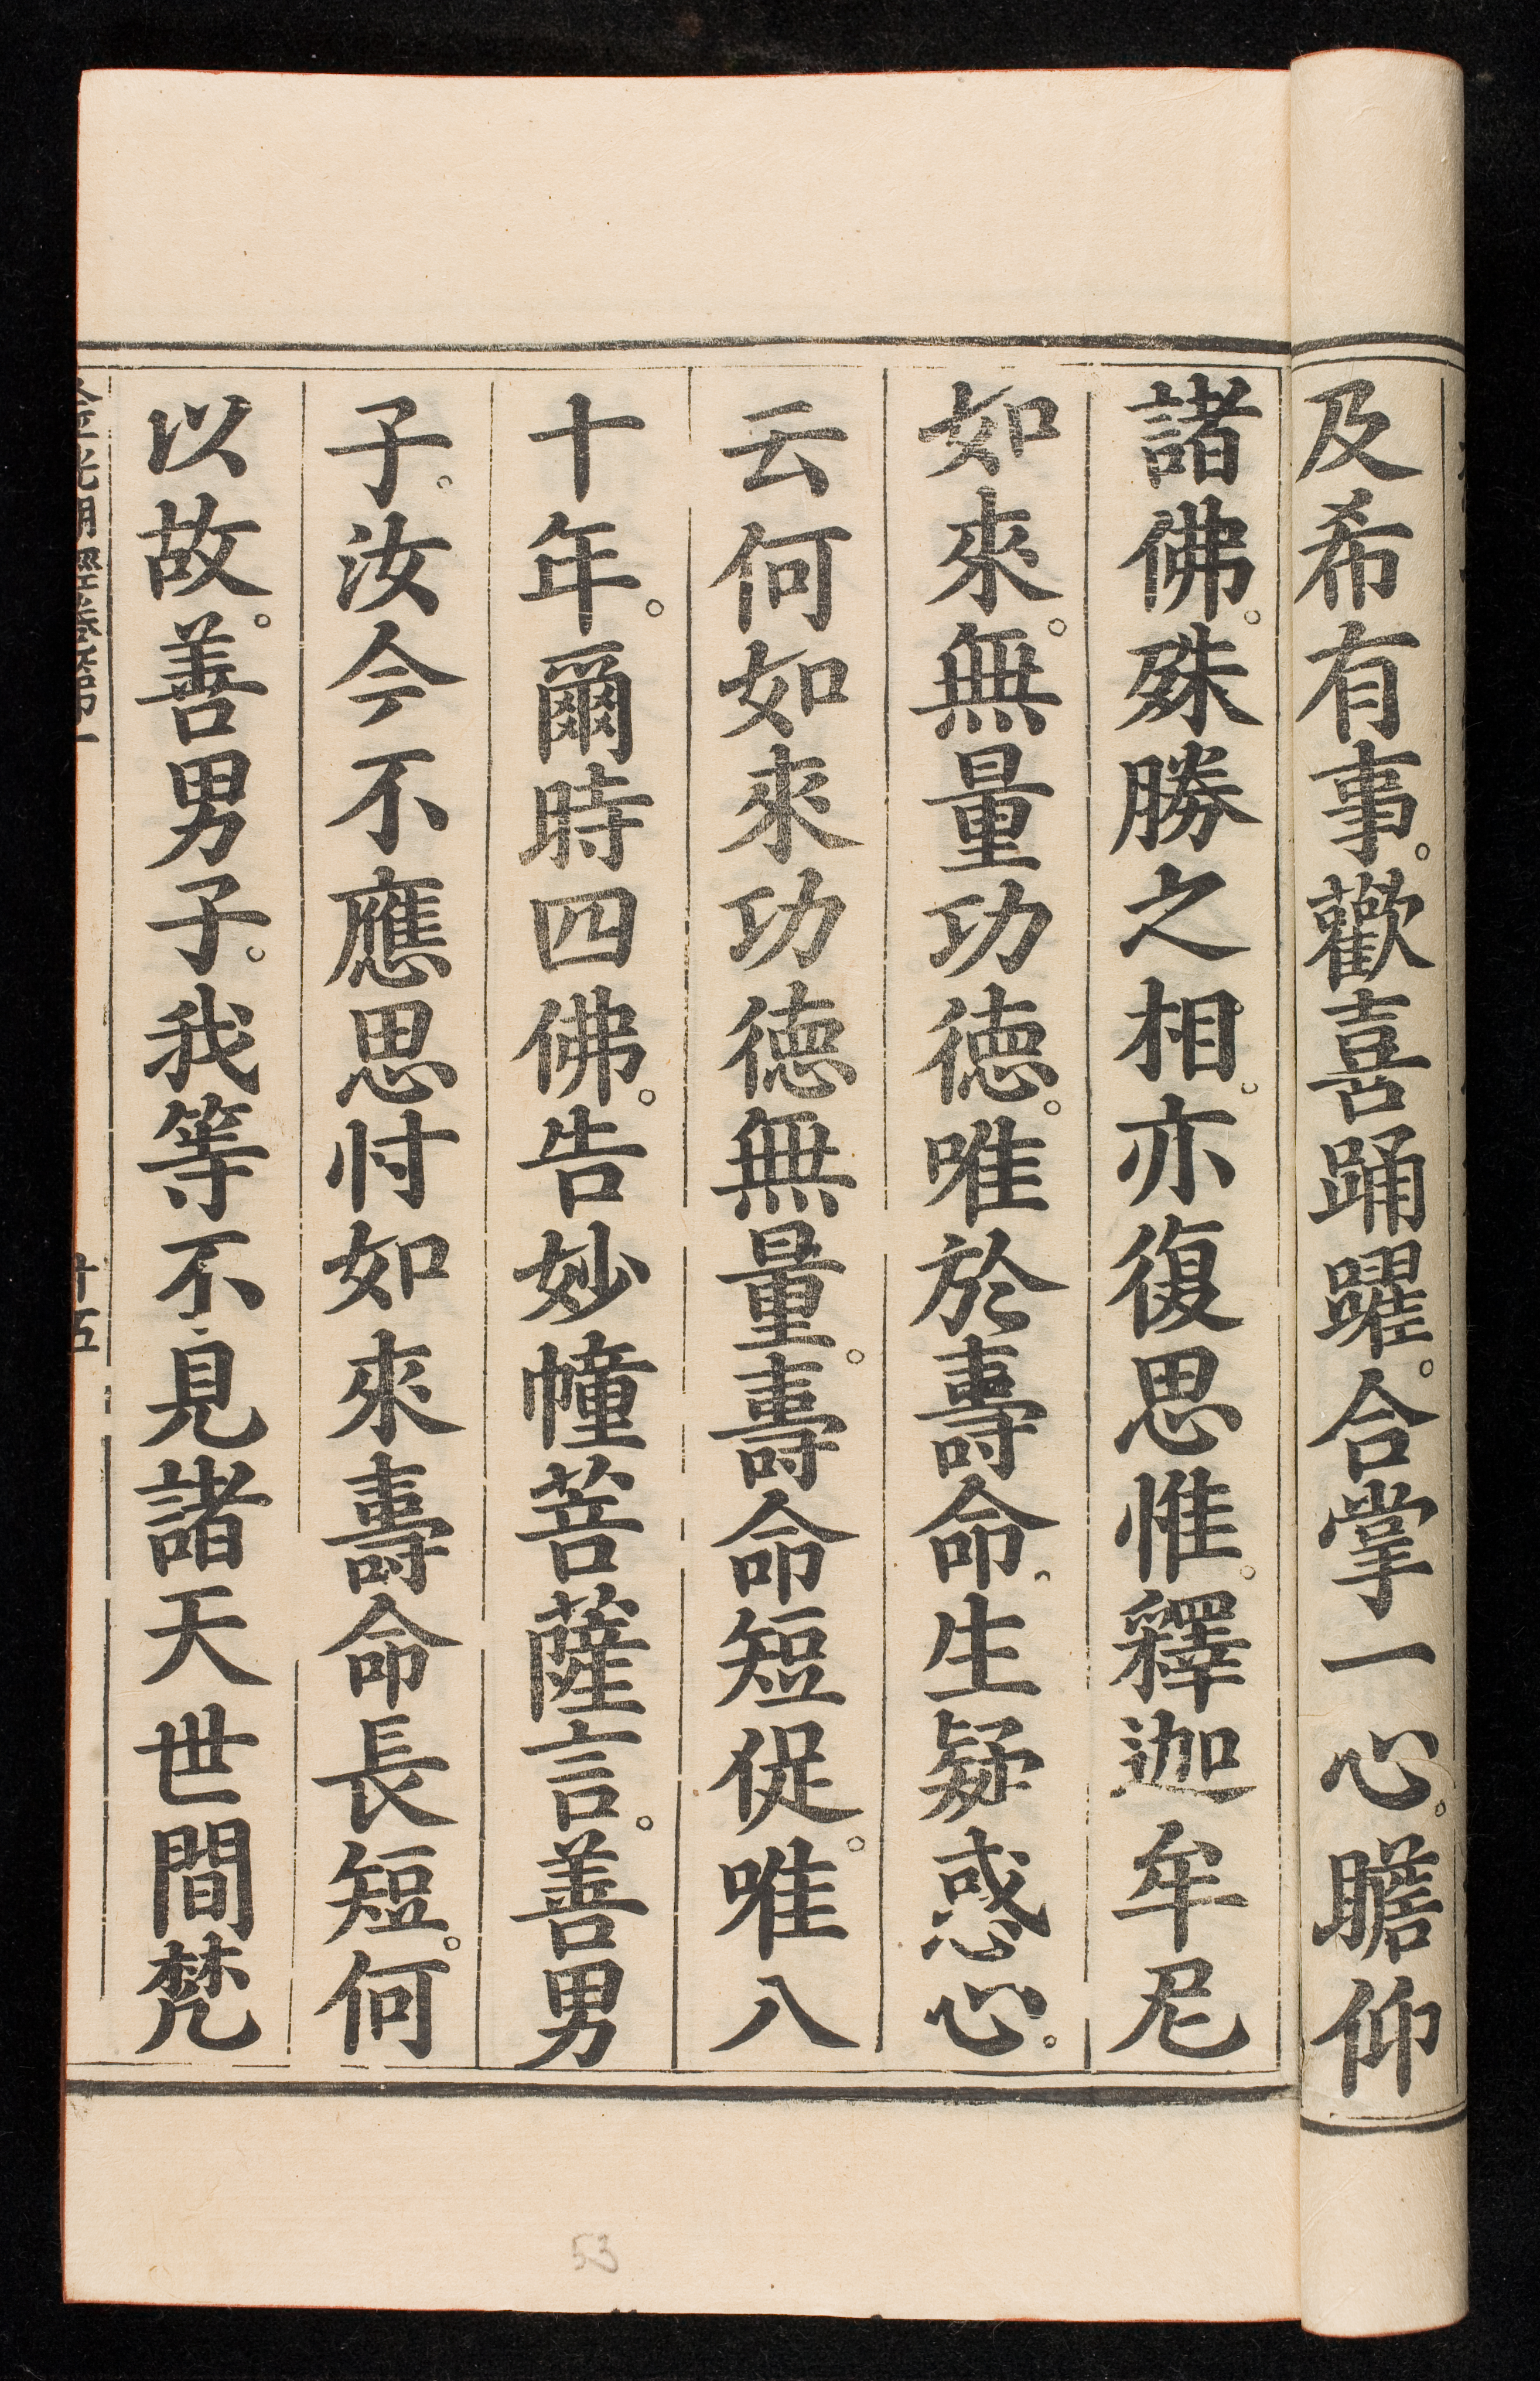 及希有事。歡喜踊躍。合掌一心。瞻仰
諸佛。殊勝之相。亦復思惟。釋迦牟尼
如來。無量功德。唯於壽命。生疑惑心。
云何如來功德無量。壽命短促。唯八
十年。爾時四佛。告妙幢菩薩言。善男
子。汝今不應思忖如來壽命長短。何
以故。善男子。我等不見諸天世間梵
金光明經卷第一
十五
53